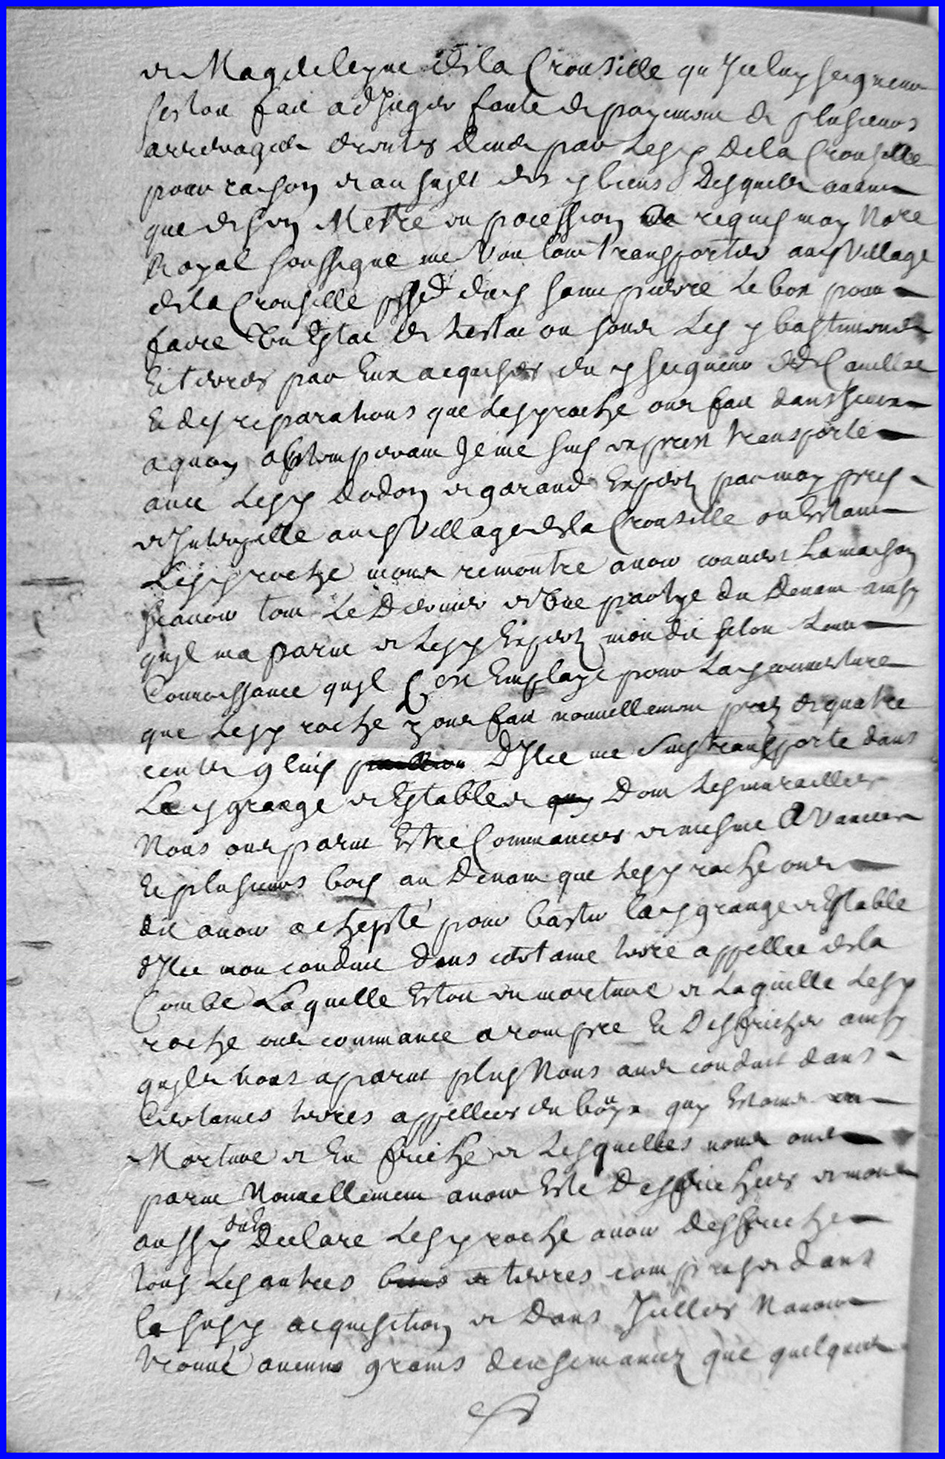 de Magdeleyne de la Crouzille qu Iceluy seigneur
sestoit fait adjuger faute de payement de plusieurs
arrerages de rentes deubs par lesd de la Crouzille
pour raison et au sujet desd biens desquels avant
que desen Metre en pocession Ma requis moy No.re
Royal soussigne me vouloir transporter aud village
de la Crouzille psse dud saint pierre le bost pour
faire un Estat de lestat ou sont lesd bastiments
Et terres par Eux acquises dud seigneur de
Et des reparations que lesd roche ont fait dans
a quoy obtemperant Je me suis expres transporte
avec lesd dodon et garaud Experts par moy pris
aud Village de la Crouzille ou Estant
lesd roche mont remontre avoir couvert la maison
scavoir tout le Derrier et une partye du Devant ainsy
quil ma parut et lesd Experts mont dit selon leur
Connoissance quil sest Employe pour lad couverture
que lesd roche y ont fait nouvellement pres de quatre
cents gluis D'Ilec me suis transporte dans
La d grange et Establee Dont les murailles
Nous ont parut Estre Commances et mesme Avances
Et plusieurs bois au Devant que lesd roche ont
dit avoir achepté pour bastir lad grange et Estable
d'Ilec mont conduit dans certaine terre appellee de la
Combe Laquelle Estoit en morture et laquelle lesd
roche ont commance a rompre Et Desfricher ainsy
quils nous aparut plus Nous ont conduit dans
Certaines terres appellees du qui Estoient en
Morture et En friche et lesquelles nous ont
parut Nouvellement avoir Esté Desfrichees et mont
aussy Declare lesd roche avoir desfriche
tous les autres terres comprises dans
la susd acquisition et Dans Icelles Navoir
trouvé aucuns grains densemancez que quelques